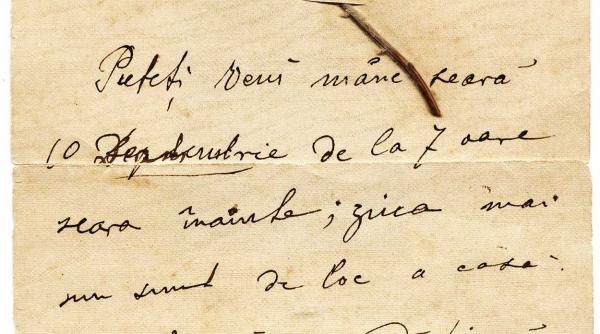 Puteți veni mâne seară
10 Septembrie de la 7 oare
seara înainte; ziua mai
nu sunt de loc a casă.